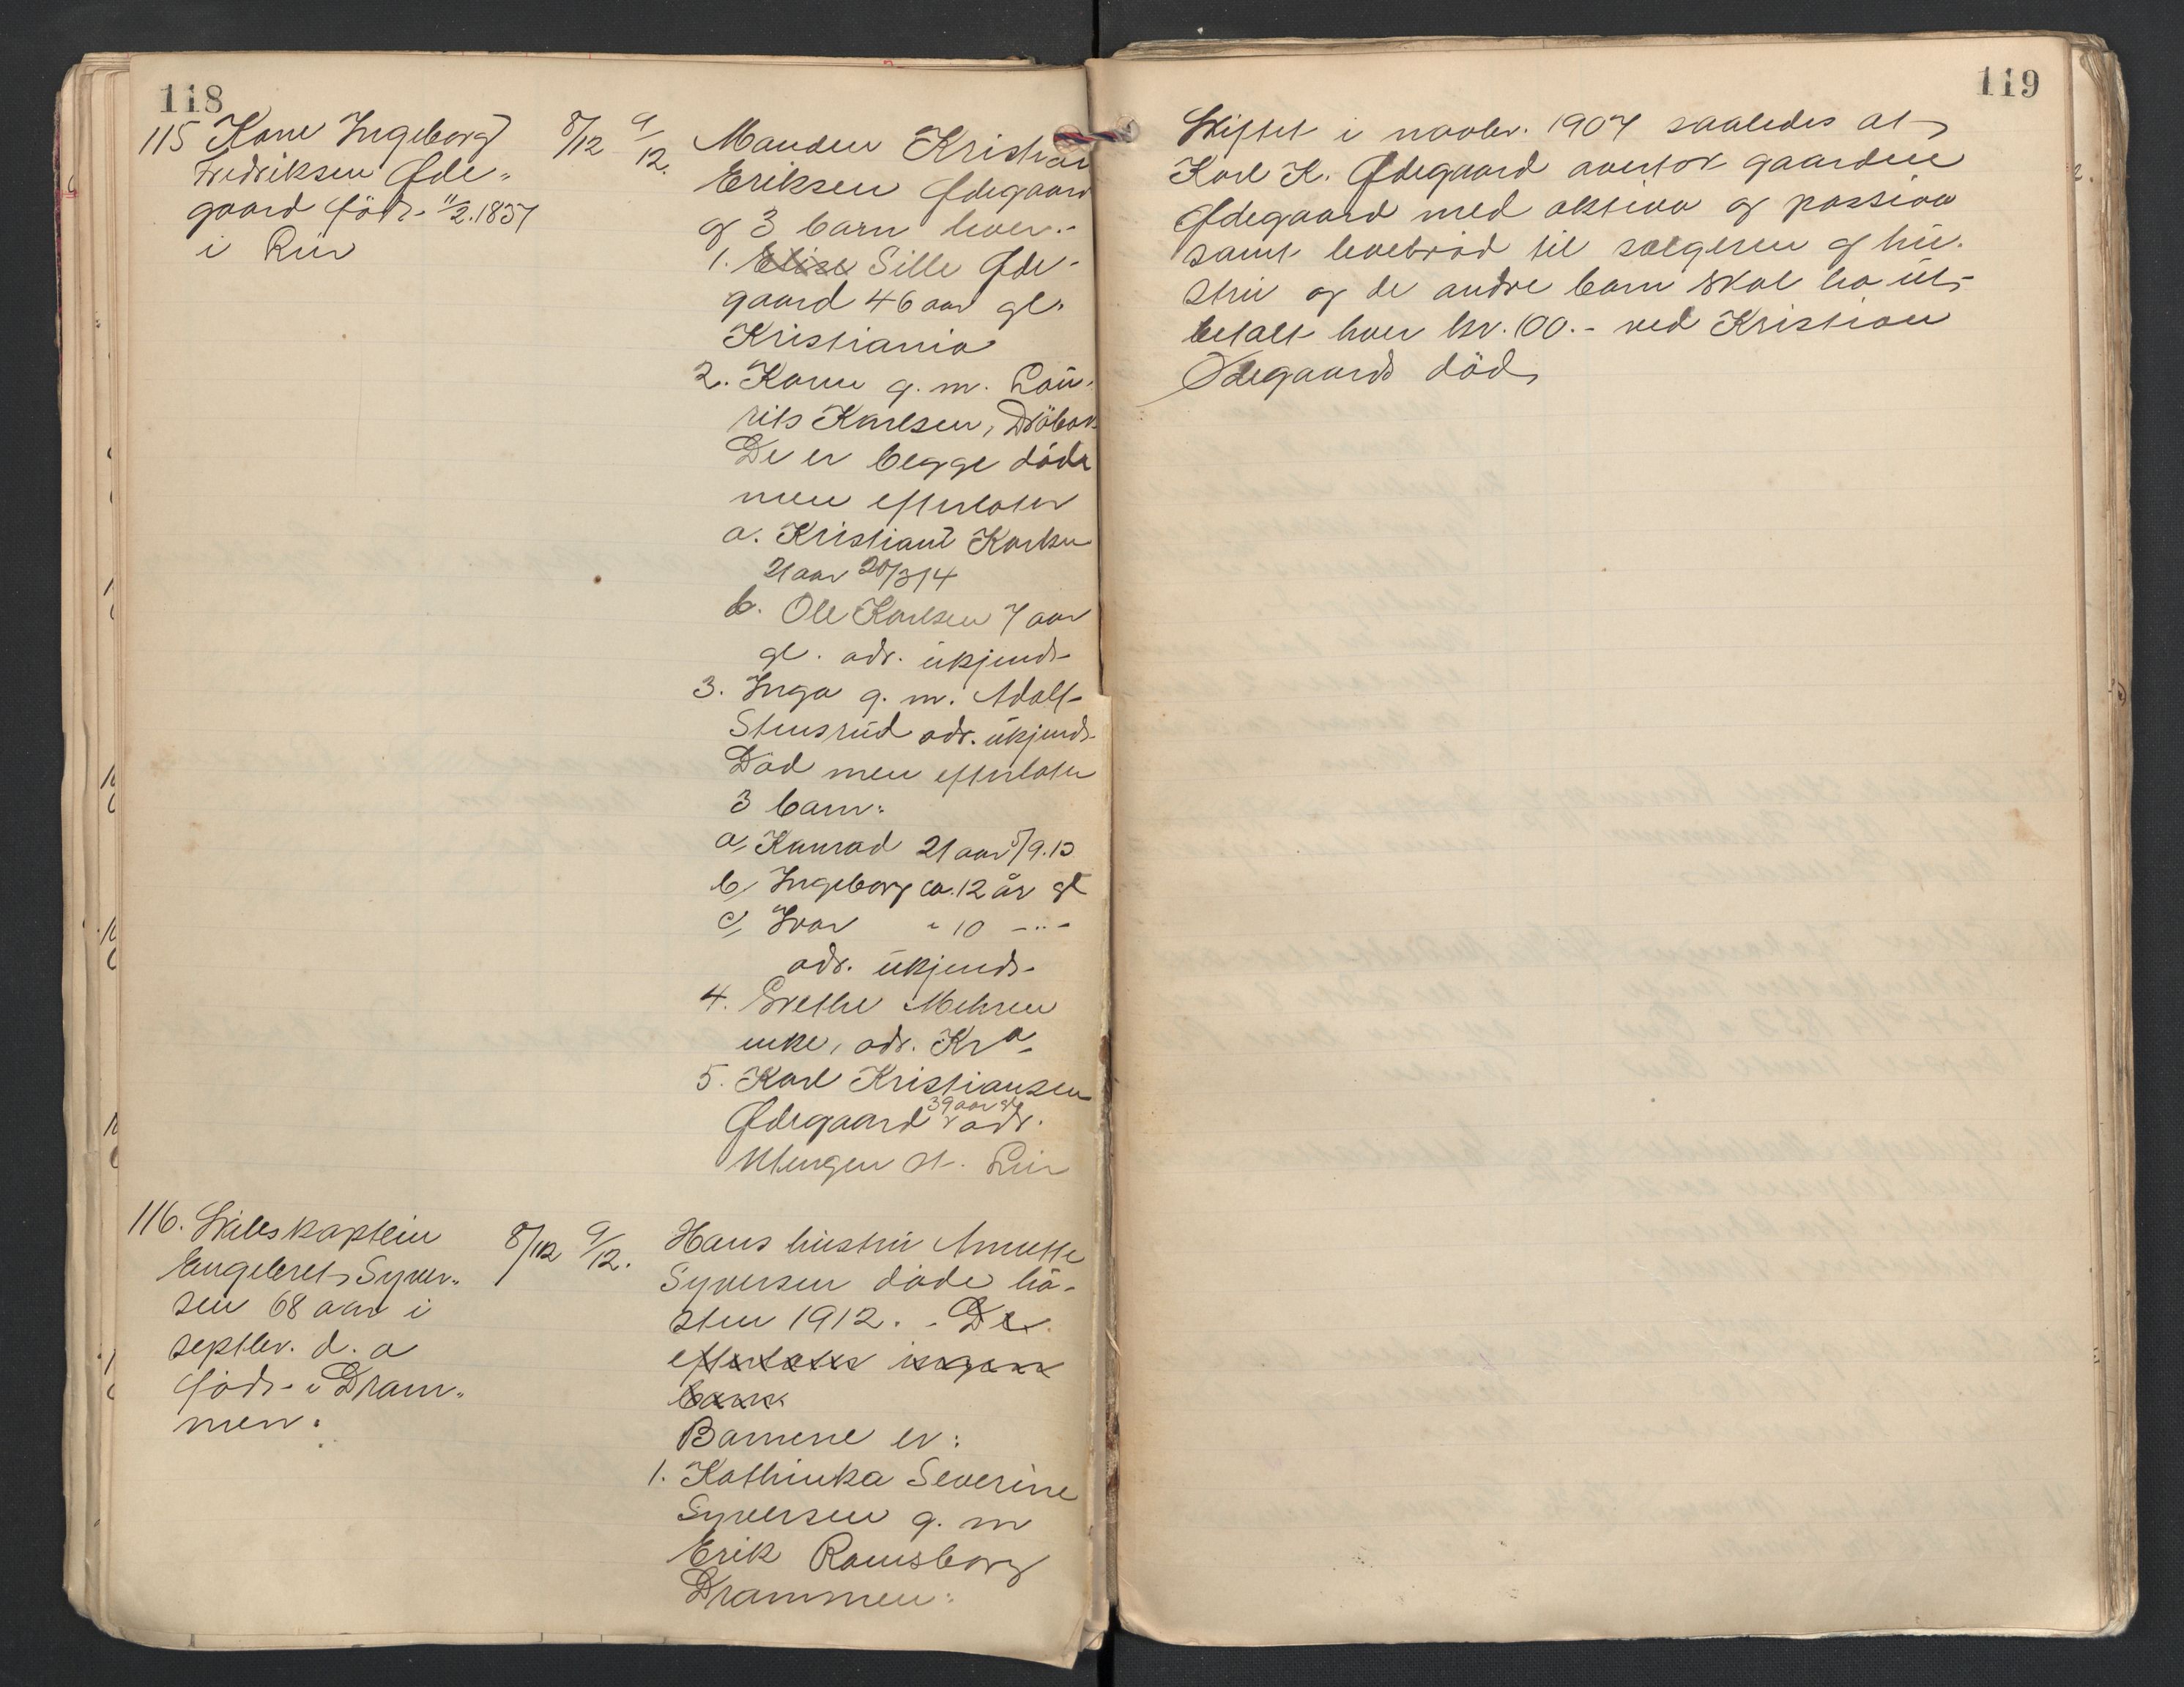 118
115 Kone Ingeborg
Fredriksen Øde„
gaard föd. 11/2.1837
i Lier
8/12 9/12.
Manden Kristian
Eriksen Ødegaard
og 3 barn hver.-
1. Elise Sille Øde-
gaard 46 aar gl.
Kristiania
2. Karen g. m. Lau-
rits Karlsen, Dröbak
De er begge döde
men efterlater
a. Kristian Karlsen
21 aar 20/3 14
b. Ole Karlsen 7 aar
gl. adr. ukjendt
3. Inga g. m. Adolf
Stensrud adr. ukjendt
Död men efterlater
3 barn:
a, Konrad 21 aar 5/9.13
b, Ingeborg ca. 12 år gl
c, Ivar " 10 -"-
adr. ukjendt
4. Grethe Mehren
enke, adr. Kra
5. Karl Kristiansen
Ødegaard 39 aar gl adr.
st. Lier
116. Skibskaptein
Engebret Syver„
sen 68 aar i
septbr. d. a
föd i Dram„
men.
8/12 9/12.
Hans hustru Annette
Syversen döde hö-
sten 1912. - De
efterlater ingen
barn
Barnene er:
1. Kathinka Severine
Syversen g. m
Erik Ramsborg
Drammen:
119
Skiftet i novbr. 1907 saaledes at
Karl K. Ødegaard overtok gaarden
Ødegaard med aktiva og passiva
samt levebröd til sælgeren og hu-
stru og de andre barn skal ha ut-
betalt hver kr. 100.- ved Kristian
Ødegaards död